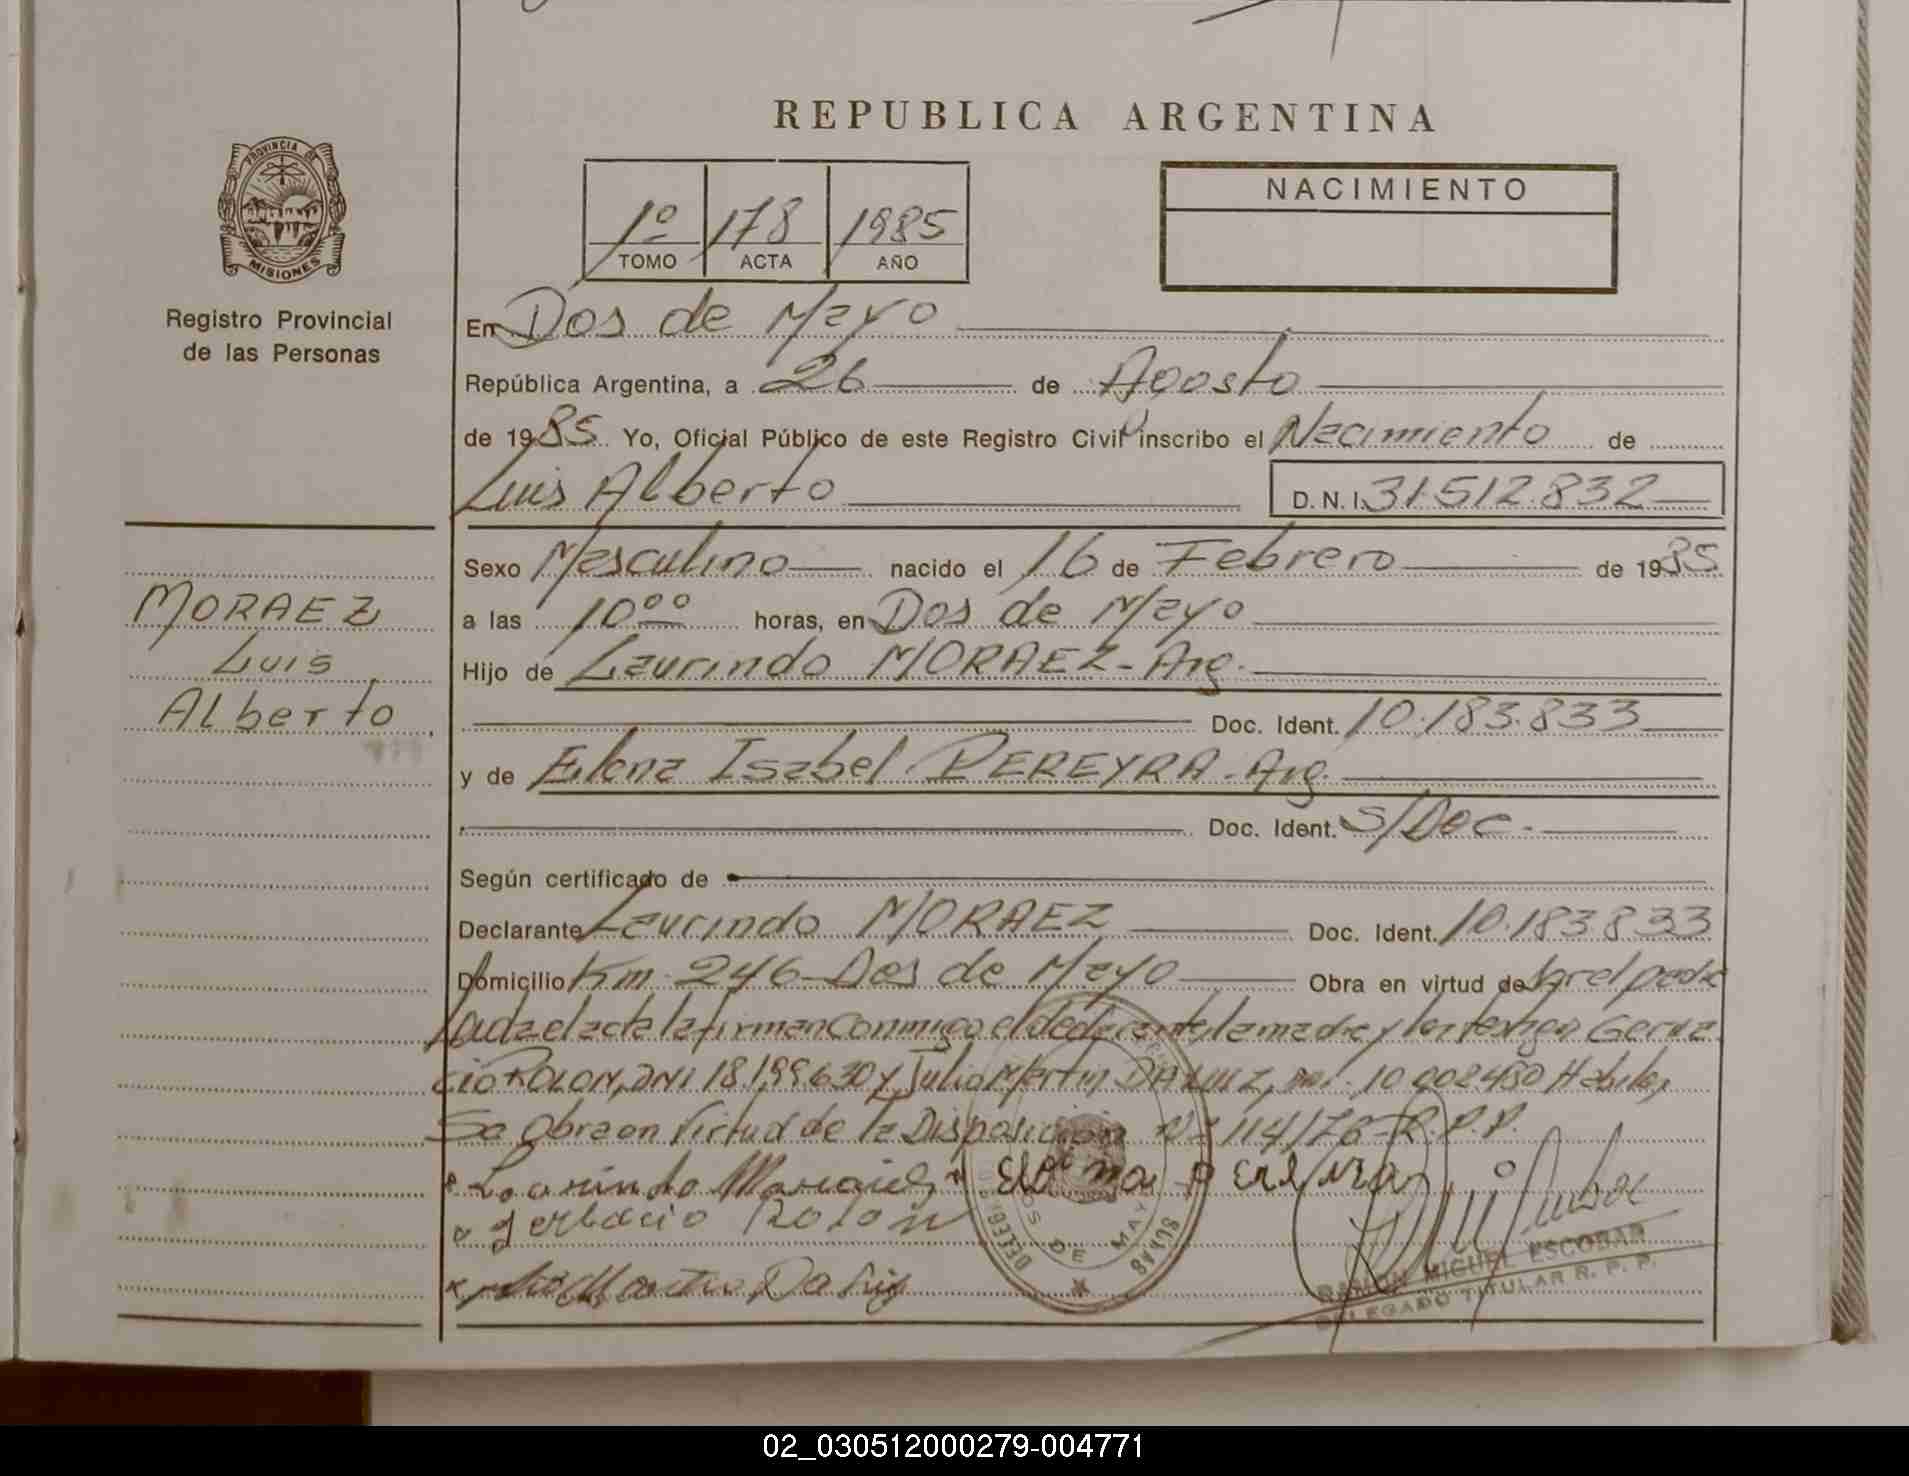 REPUBLICA ARGENTINA
PROVINCIA DE
MISIONES
Registro Provincial
de las Personas
1º 178 1985
TOMO ACTA AÑO
NACIMIENTO
En Dos de Mayo
República Argentina, a 26 de Agosto
de 1985 Yo, Oficial Público de este Registro Civil inscribo el Nacimiento de
Luis Alberto D.N.I. 31.512.832
MORAEZ
Luis
Alberto
Sexo Masculino nacido el 16 de Febrero de 1985
a las 10⁰⁰ horas, en Dos de Mayo
Hijo de Laurindo MORAEZ - Arg.
Doc. Ident. 10.183.833
y de Elena Isabel PEREYRA - Arg.
Doc. Ident. S/Doc.
Según certificado de
Declarante Laurindo MORAEZ Doc. Ident. 10.183.833
Domicilio Km. 246 Dos de Mayo Obra en virtud de ser el padre
Leida el acta la firman conmigo el declarante, la madre y los testigos Gerva
cio ROLON, DNI 18.199630 y Julio Martin DA LUZ, 10.902450 Habiles
Se Obra en Virtud de la Disposicion Nº 114/76 - R.P.P.
Gerbacio Rolon
DOS DE MAYO
RAMON MIGUEL ESCOBAR
DELEGADO TITULAR R. P. P.
02_030512000279-004771